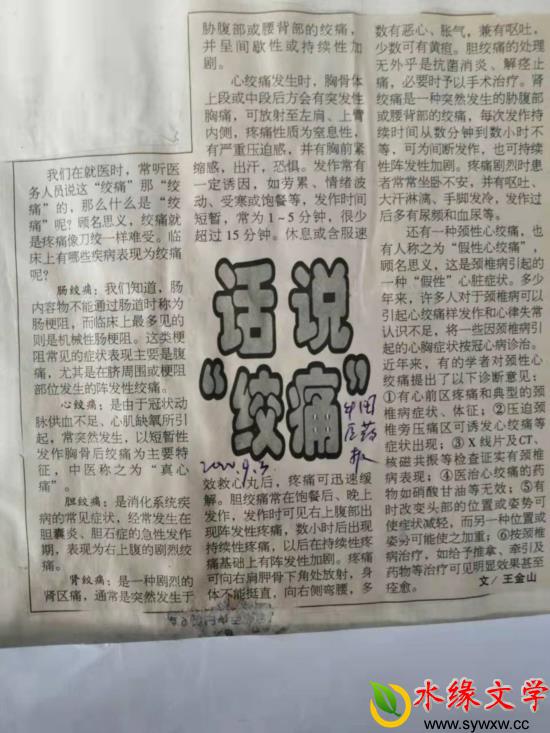 话说
“绞痛”
中国
医药
报
2000.9.5
我们在就医时，常听医
务人员说这“绞痛”那“绞
痛”的，那么什么是“绞
痛”呢？顾名思义，绞痛就
是疼痛像刀绞一样难受。临
床上有哪些疾病表现为绞痛
呢？
肠绞痛：我们知道，肠
内容物不能通过肠道时称为
肠梗阻，而临床上最多见的
则是机械性肠梗阻。这类梗
阻常见的症状表现主要是腹
痛，尤其是在脐周围或梗阻
部位发生的阵发性绞痛。
心绞痛：是由于冠状动
脉供血不足、心肌缺氧所引
起，常突然发生，以短暂性
发作胸骨后绞痛为主要特
征，中医称之为“真心
痛”。
胆绞痛：是消化系统疾
病的常见症状，经常发生在
胆囊炎、胆石症的急性发作
期，表现为右上腹的剧烈绞
痛。
肾绞痛：是一种剧烈的
肾区痛，通常是突然发生于
胁腹部或腰背部的绞痛，
并呈间歇性或持续性加
剧。
心绞痛发生时，胸骨体
上段或中段后方会有突发性
胸痛，可放射至左肩、上臂
内侧，疼痛性质为窒息性，
有严重压迫感，并有胸前紧
缩感，出汗，恐惧。发作常有
一定诱因，如劳累、情绪波
动、受寒或饱餐等，发作时间
短暂，常为1～5分钟，很少
超过15分钟。休息或含服速
效救心丸后，疼痛可迅速缓
解。胆绞痛常在饱餐后、晚上
发作，发作时可见右上腹部出
现阵发性疼痛，数小时后出现
持续性疼痛，以后在持续性疼
痛基础上有阵发性加剧。疼痛
可向右肩胛骨下角处放射，身
体不能挺直，向右侧弯腰，多
数有恶心、胀气，兼有呕吐，
少数可有黄疸。胆绞痛的处理
无外乎是抗菌消炎、解痉止
痛，必要时予以手术治疗。肾
绞痛是一种突然发生的胁腹部
或腰背部的绞痛，每次发作持
续时间从数分钟到数小时不
等，可为间断发作，也可持续
性阵发性加剧。疼痛剧烈时患
者常常坐卧不安，并有呕吐、
大汗淋漓、手脚发冷，发作过
后多有尿频和血尿等。
还有一种颈性心绞痛，也
有人称之为“假性心绞痛”，
顾名思义，这是颈椎病引起的
一种“假性”心脏症状。多少
年来，许多人对于颈椎病可以
引起心绞痛样发作和心律失常
认识不足，将一些因颈椎病引
起的心胸症状按冠心病诊治。
近年来，有的学者对颈性心
绞痛提出了以下诊断意见：
①有心前区疼痛和典型的颈
椎病症状、体征；②压迫颈
椎旁压痛区可诱发心绞痛等
症状出现；③X线片及CT、
核磁共振等检查证实有颈椎
病表现；④医治心绞痛的药
物如硝酸甘油等无效；⑤有
时改变头部的位置或姿势可
使症状减轻，而另一种位置或
姿势可能使之加重；⑥按颈椎
病治疗，如给予推拿、牵引及
药物等治疗可见明显效果甚至
痊愈。
文／王金山
水缘文学
www.sywxw.cc